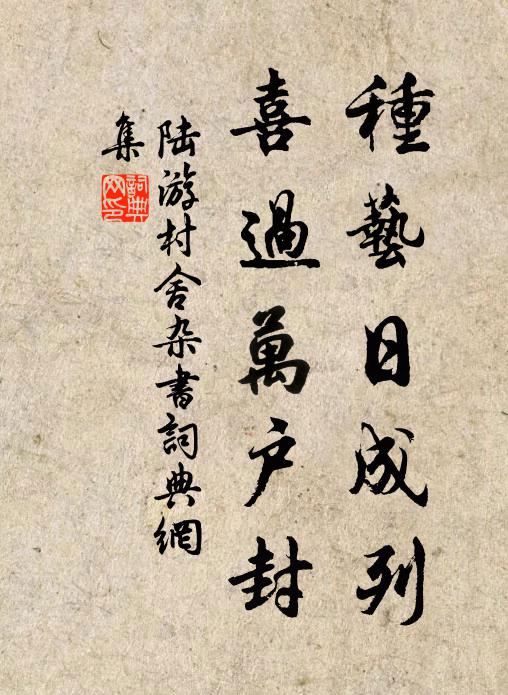 種藝日成列
喜過萬户封
陆游村舍杂書詞典網
集
詞典
网印